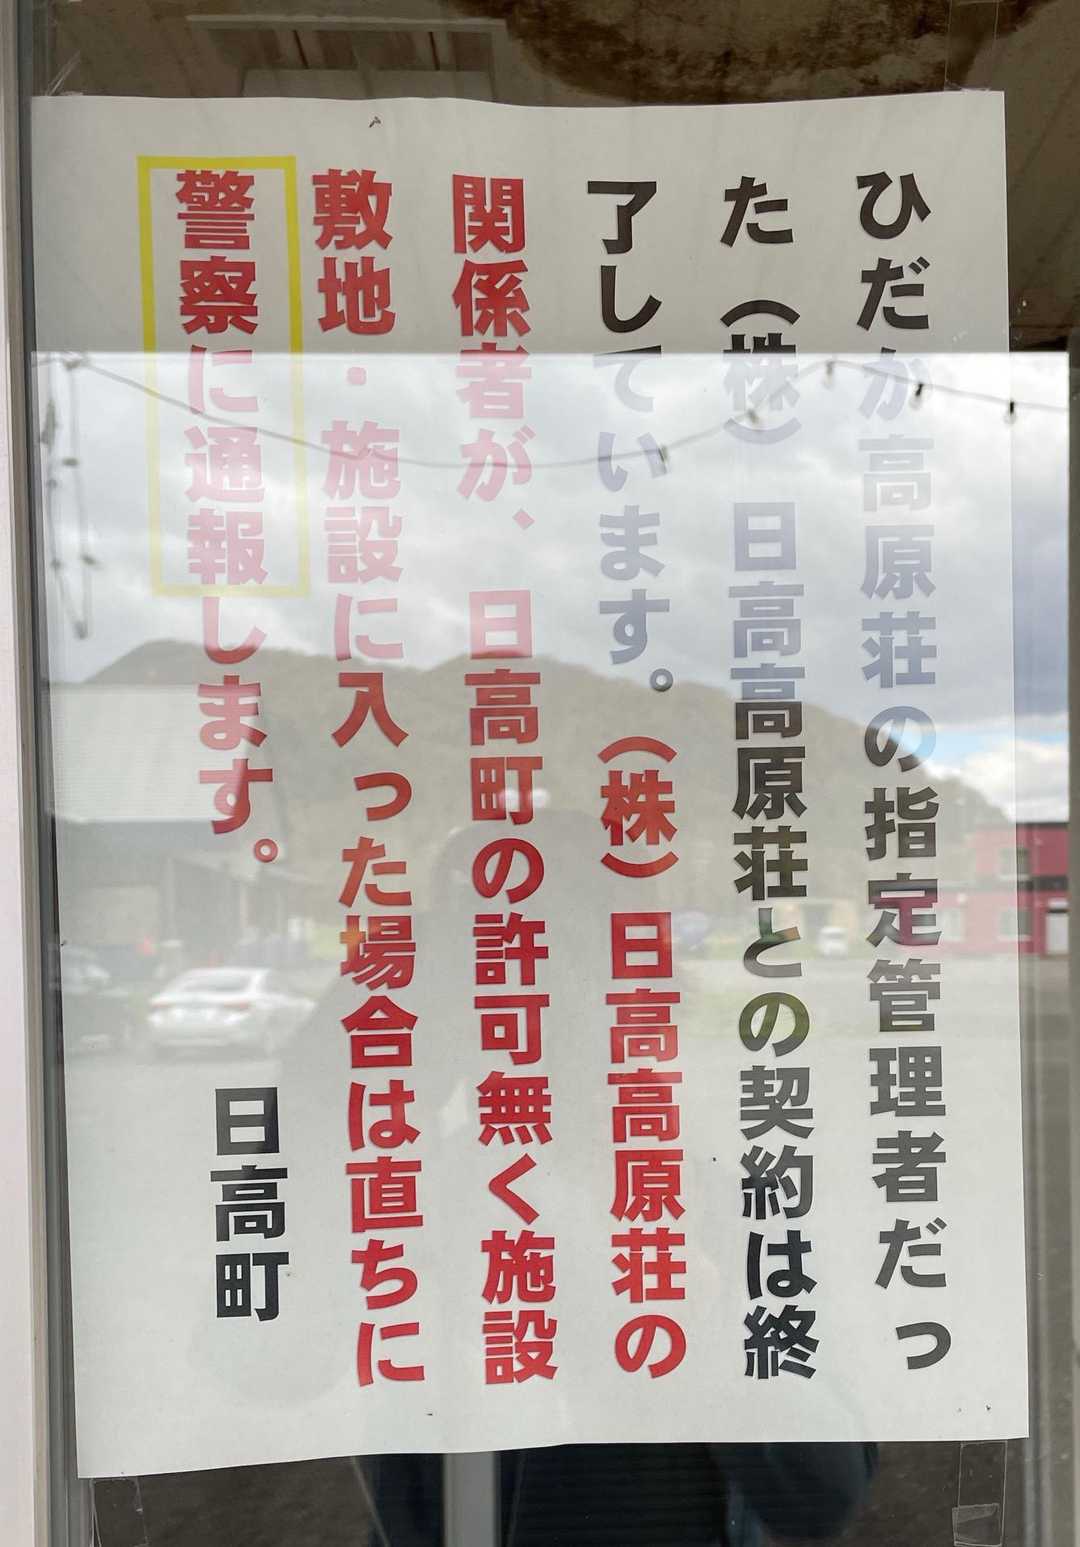 ひだか高原荘の指定管理者だっ
た（株）日高高原荘との契約は終
了しています。（株）日高高原荘の
関係者が、日高町の許可無く施設
敷地・施設に入った場合は直ちに
警察に通報します。
日高町